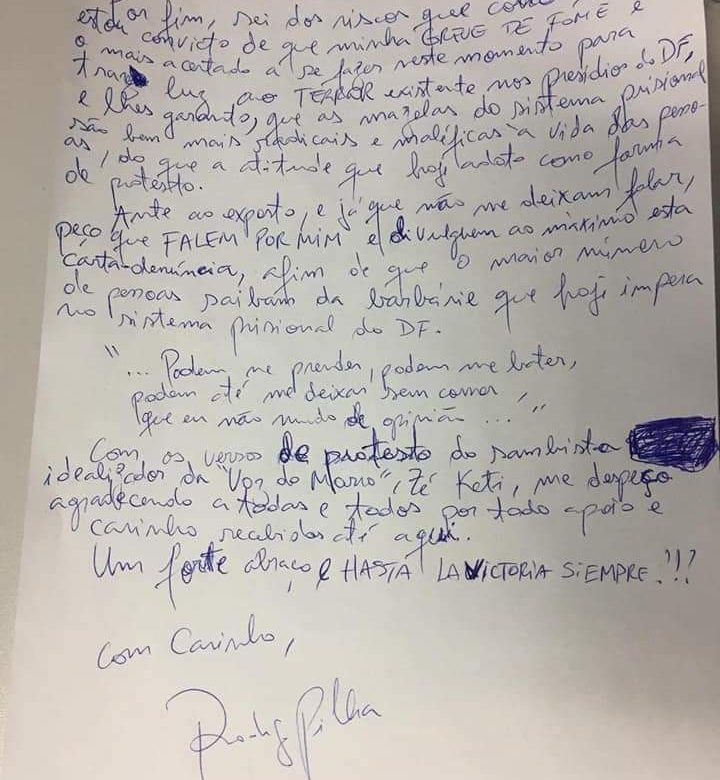 or fim, sei dos riscos que com
estou convicto de que minha GREVE DE FOME é
o mais acertado a se fazer neste momento para
trazer luz ao TERROR existente nos presídios do DF,
e lhes garanto, que as mazelas do sistema prisional
são bem mais radicais e maléficas à vida das pesso-
as, do que a atitude que hoje adoto como forma
de protesto.
Ante ao exposto, e já que não me deixam falar,
peço que FALEM POR MIM e divulguem ao máximo esta
carta-denúncia, afim de que o maior número
de pessoas saibam da barbárie que hoje impera
no sistema prisional do DF.
"... Podem me prender, podem me bater,
podem até me deixar sem comer,
que eu não mudo de opinião ..."
Com os versos de protesto do sambista
idealizador da "Voz do Morro", Zé Keti, me despeço
agradecendo a todas e todos por todo apoio e
carinho recebidos até aqui.
Um forte abraço e HASTA LA VICTORIA SIEMPRE!!!
com Carinho,
Rodrigo Pilha